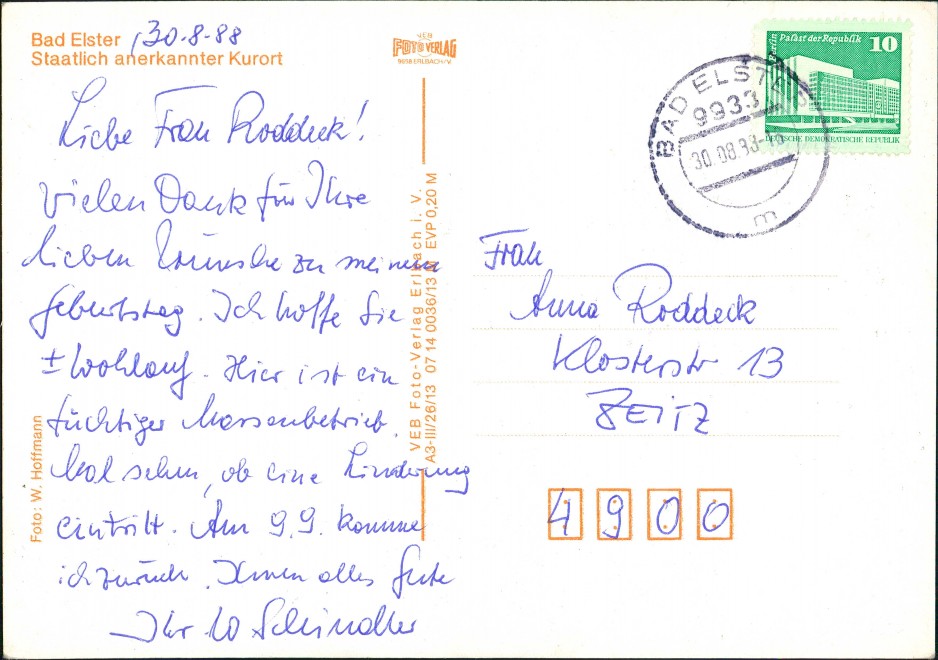 Bad Elster, 30.8.88
Staatlich anerkannter Kurort
Liebe Frau Roddeck!
Vielen Dank für Ihre
lieben Wünsche zu meinem
Geburtstag. Ich hoffe Sie
± wohlauf. Hier ist ein
tüchtiger Massenbetrieb.
Mal sehn, ob eine Linderung
eintritt. Am 9.9. komme
ich zurück. Ihnen alles Gute
Ihr W Schindler
Foto: W. Hoffmann
VEB
FOTO VERLAG
9658 ERLBACH/V.
VEB Foto-Verlag Erlbach i. V.
A3-III/26/13 07 14 0036/13 EVP 0,20 M
Palast der Republik 10
Berlin
DEUTSCHE DEMOKRATISCHE REPUBLIK
BAD ELSTER
9933
30.08.88
m
Frau
Anna Roddeck
Klosterstr 13
ZEITZ
4900